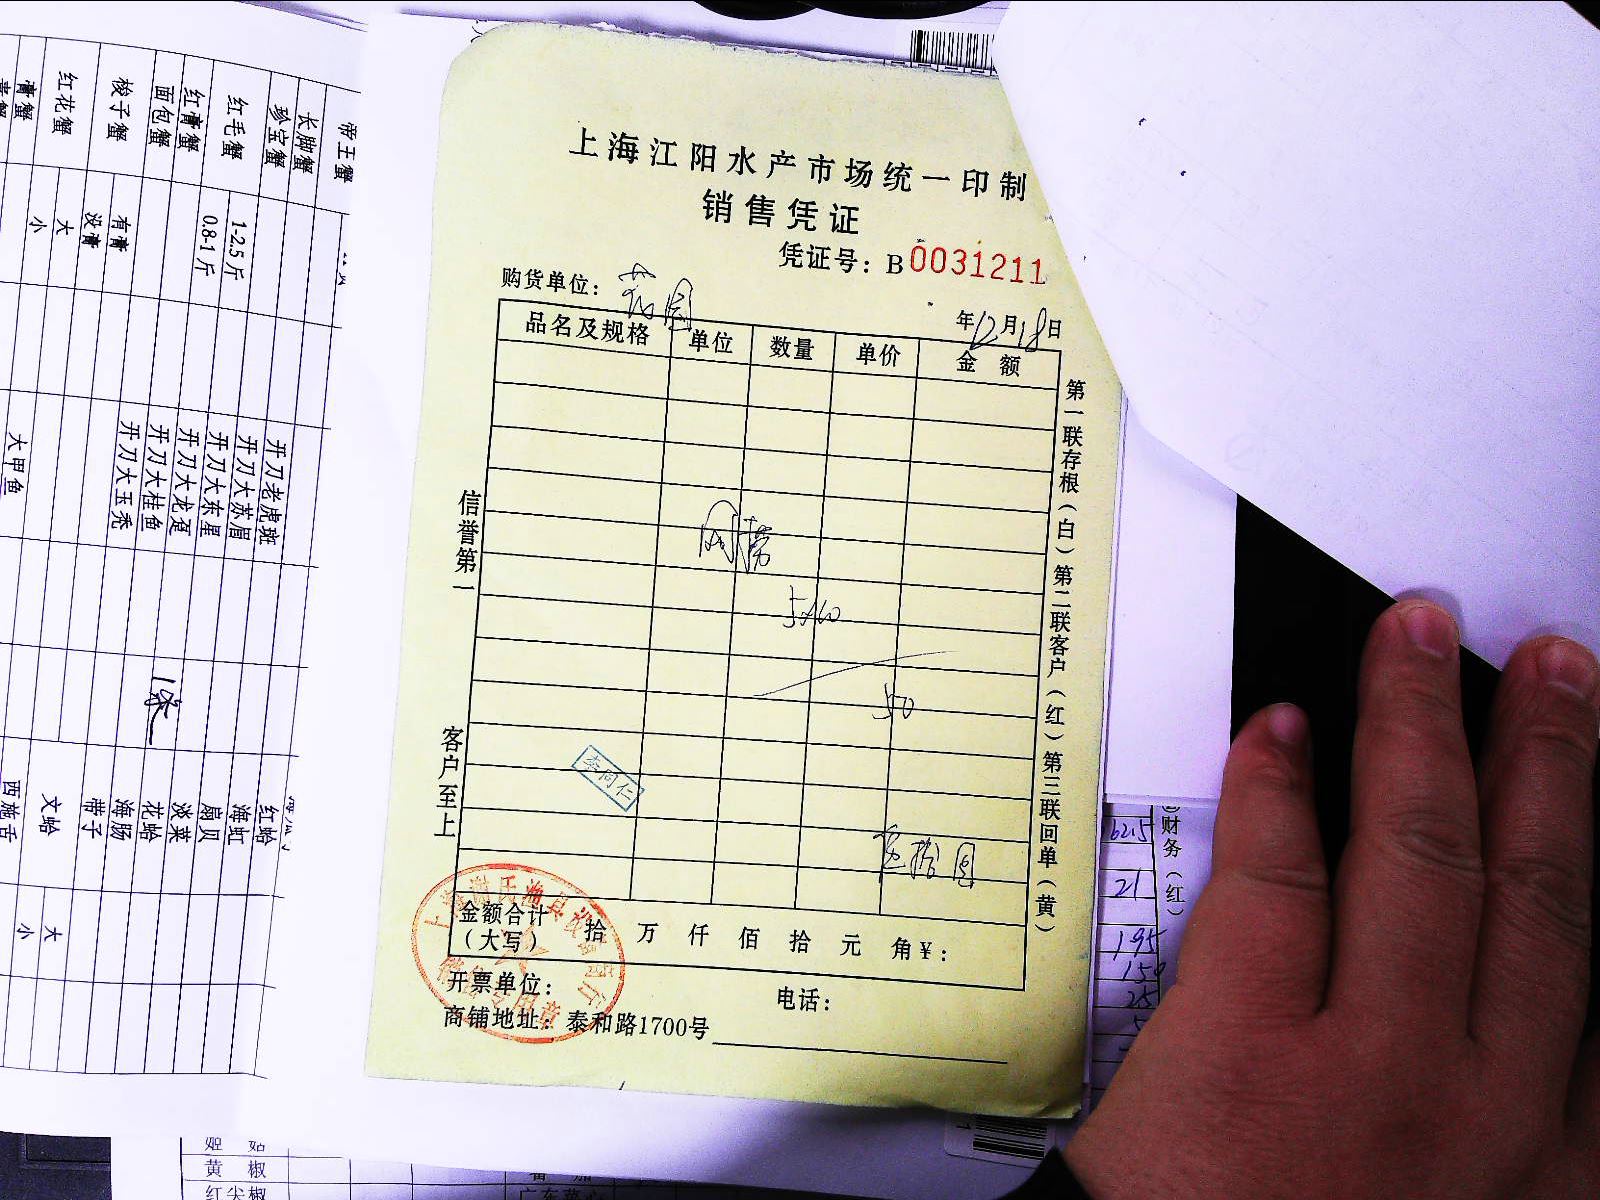 上海江阳水产市场统一印制
销售凭证
凭证号：B0031211
购货单位：花园
年12月18日
品名及规格 单位 数量 单价 金额
网捞
5×10
50
伍拾圆
李同仁
金额合计（大写） 拾 万 仟 佰 拾 元 角￥：
开票单位： 电话：
商铺地址：泰和路1700号
信誉第一 客户至上
第一联存根（白）第二联客户（红）第三联回单（黄）
帝王蟹
长脚蟹
珍宝蟹
红毛蟹 1-2.5斤 0.8-1斤
红膏蟹
面包蟹
梭子蟹 有膏 没膏
红花蟹 大 小
膏蟹
开刀老虎斑
开刀大苏眉
开刀大东星
开刀大龙趸
开刀大桂鱼
开刀大玉秃
大甲鱼
红蛤
海虹
扇贝
淡菜
花蛤
海肠
带子
文蛤 大 小
西施舌
财务（红）
6215
21
195
150
25
黄椒
红尖椒